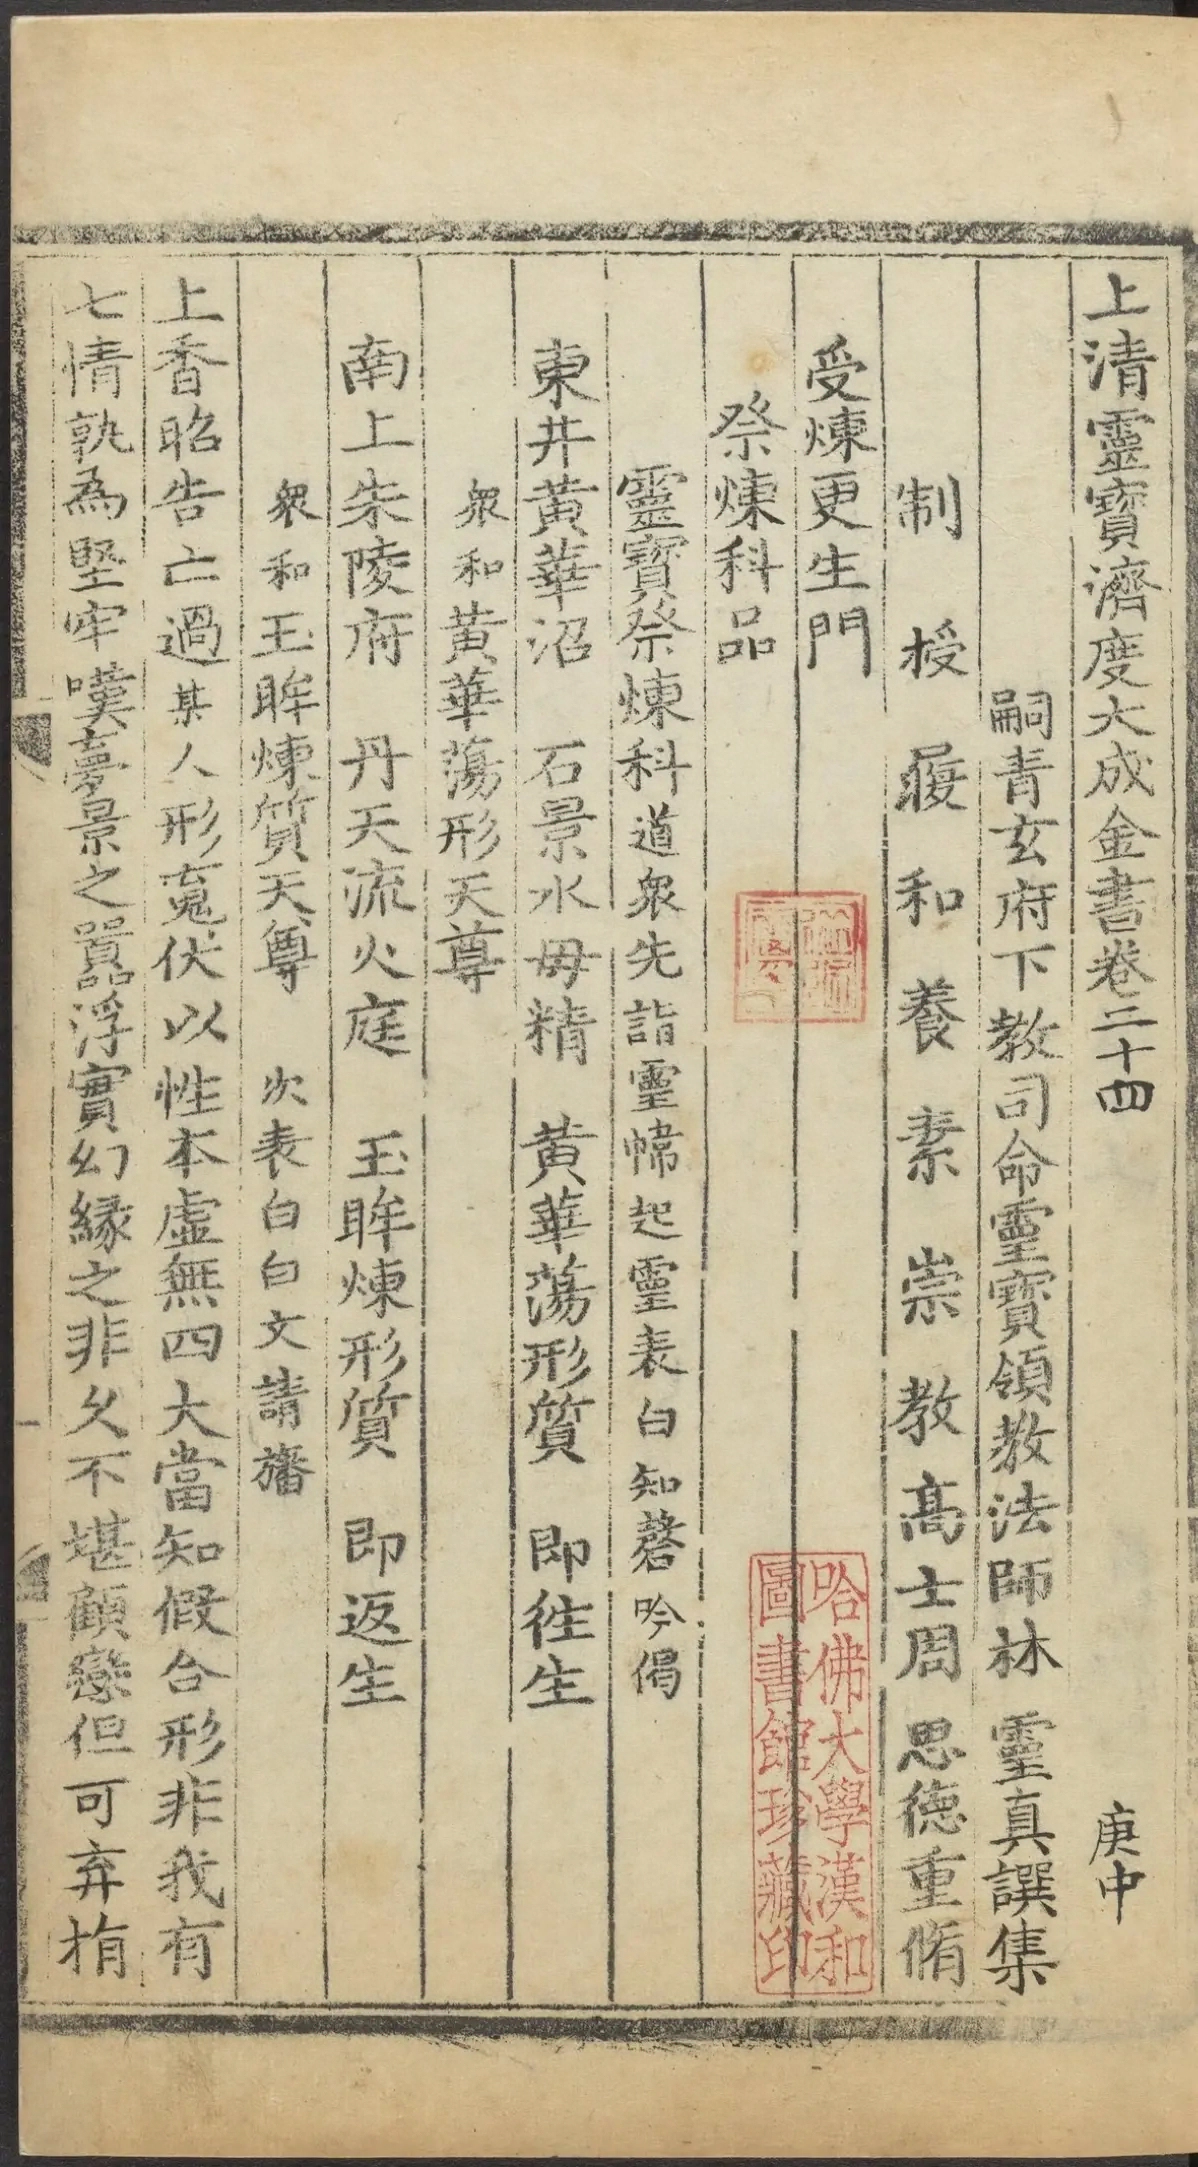 上清靈寶濟度大成金書卷二十四 庚中
嗣青玄府下教司命靈寶領教法師林 靈真譔集
制授履和養素崇教高士周 思德重脩
受煉更生門
祭煉科品
靈寶祭煉科道衆先詣靈幃起靈表白知磬吟偈
東井黃華沼 石景水母精 黃華蕩形質 即徃生
衆和黃華蕩形天尊
南上朱陵府 丹天流火庭 玉眸煉形質 即返生
衆和玉眸煉質天尊 次表白白文請旛
上香昭告亡過某人形䰟伏以性本虛無四大當知假合形非我有
七情孰為堅牢嘆夢景之嚣浮實幻緣之非乆不堪顧戀但可弃捐
哈佛大學漢和
圖書館珍藏印